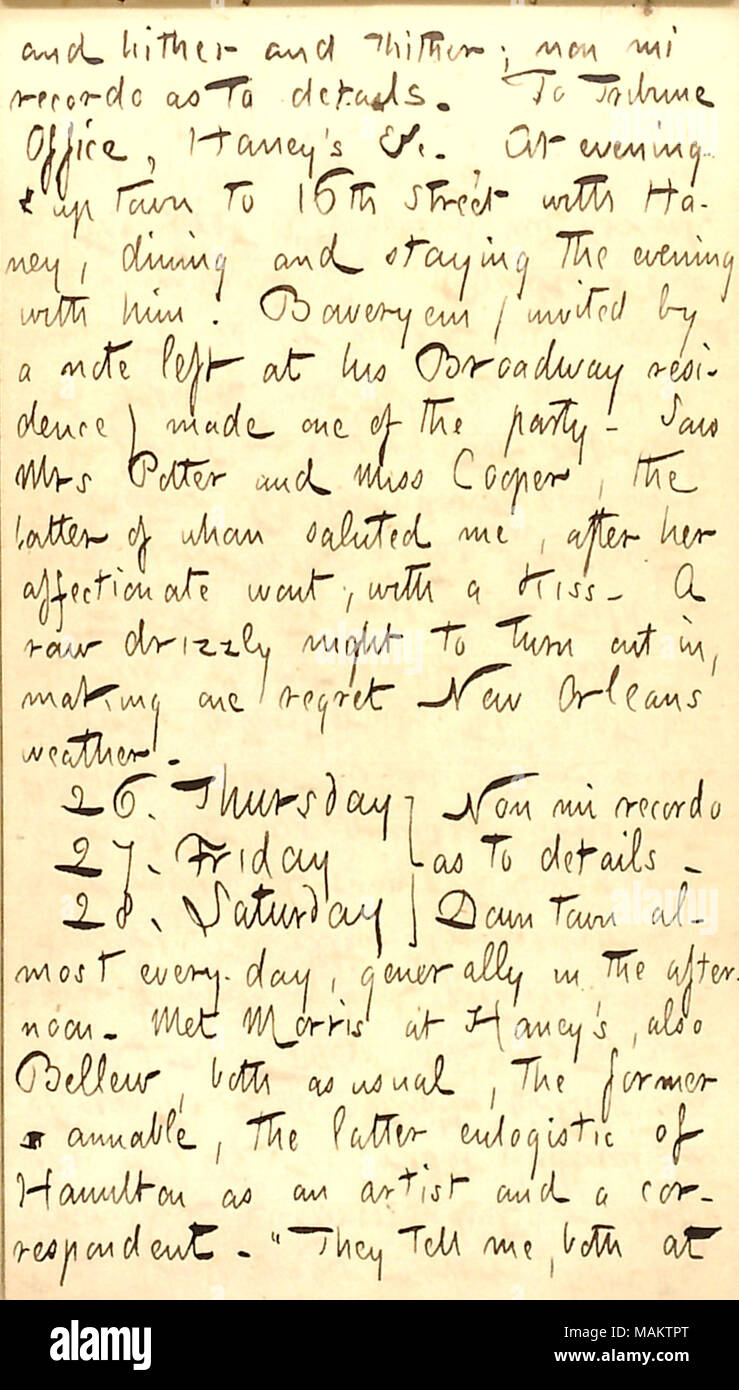 and hither and thither; non mi
recordo as to details. To Tribune
Office, Haney's &c. At evening
up town to 16th street with Ha-
ney, dining and staying the evening
with him. Boweryem (invited by
a note left at his Broadway resi-
dence) made one of the party. Saw
Mrs Potter and Miss Cooper, the
latter of whom saluted me, after her
affectionate wont, with a kiss. A
raw drizzly night to turn out in,
making one regret New Orleans
weather.
26. Thursday } Non mi recordo
27. Friday } as to details.
28. Saturday } Down town al-
most every day, generally in the after-
noon. Met Morris at Haney's, also
Bellew, both as usual, the former
amiable, the latter eulogistic of
Hamilton as an artist and a cor-
respondent. "They tell me, both at
alamy
Image ID: MAKTPT
www.alamy.com